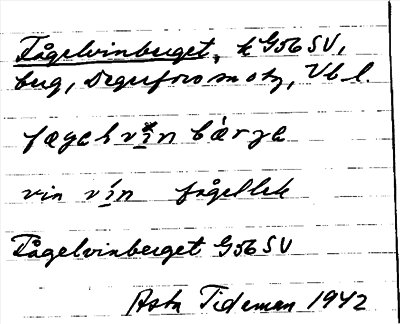 Fågelvinberget, k G56 SV,
berg, Degerfors sn otg, Vb l.
fågelvin bärge
vin vín fågellek
Fågelvinberget G56 SV
Asta Tideman 1942